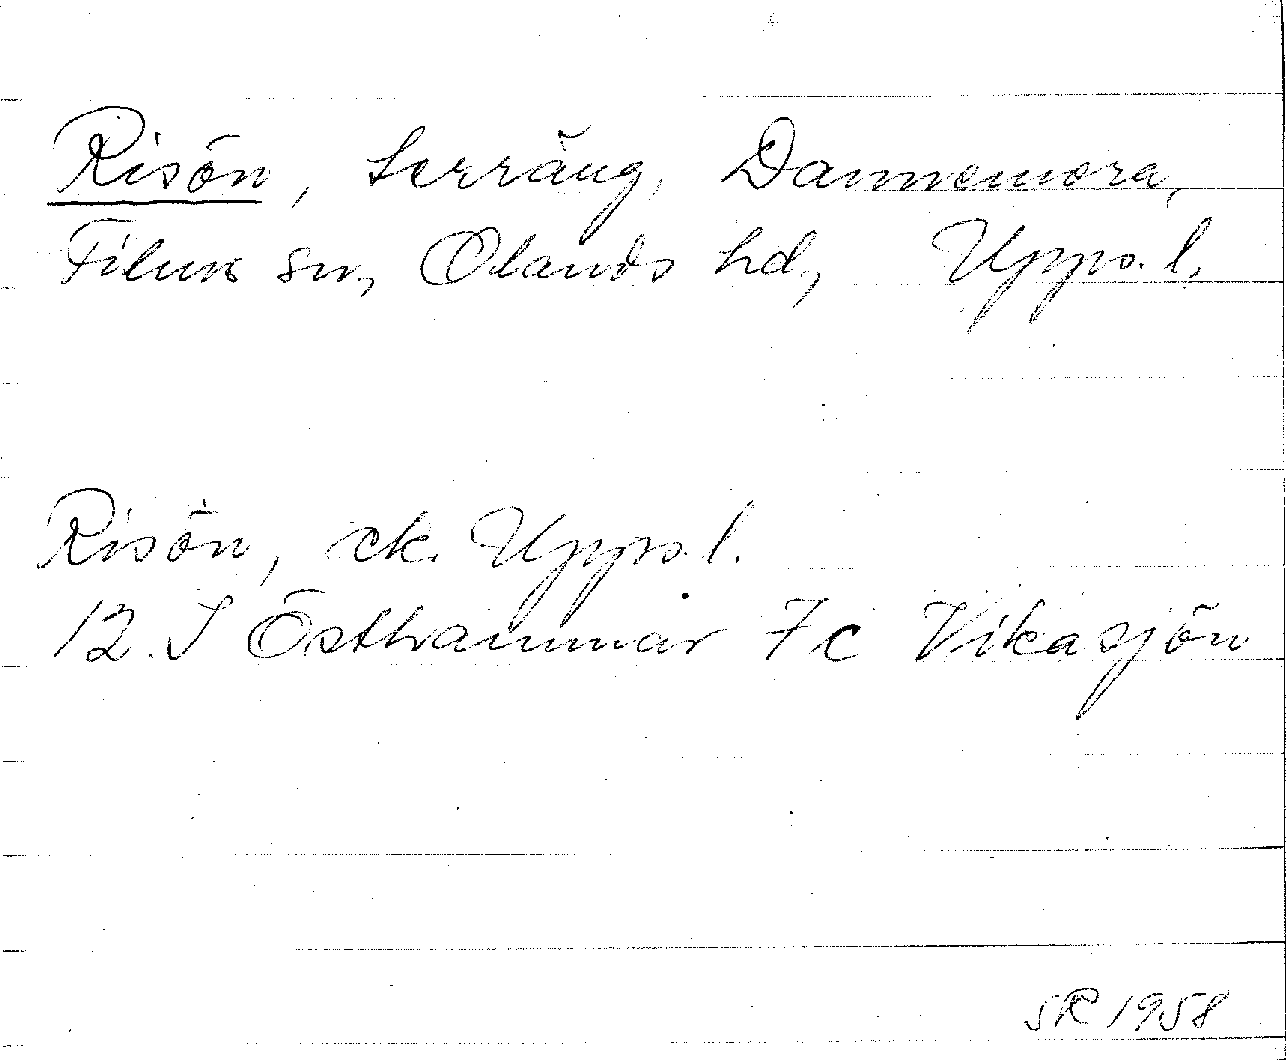 Risön, terräng, Dannemora,
Films sn, Olands hd, Upps. l.
Risön, ek. Upps. l.
12. I Östhammar 7c Vikasjön
SR 1958